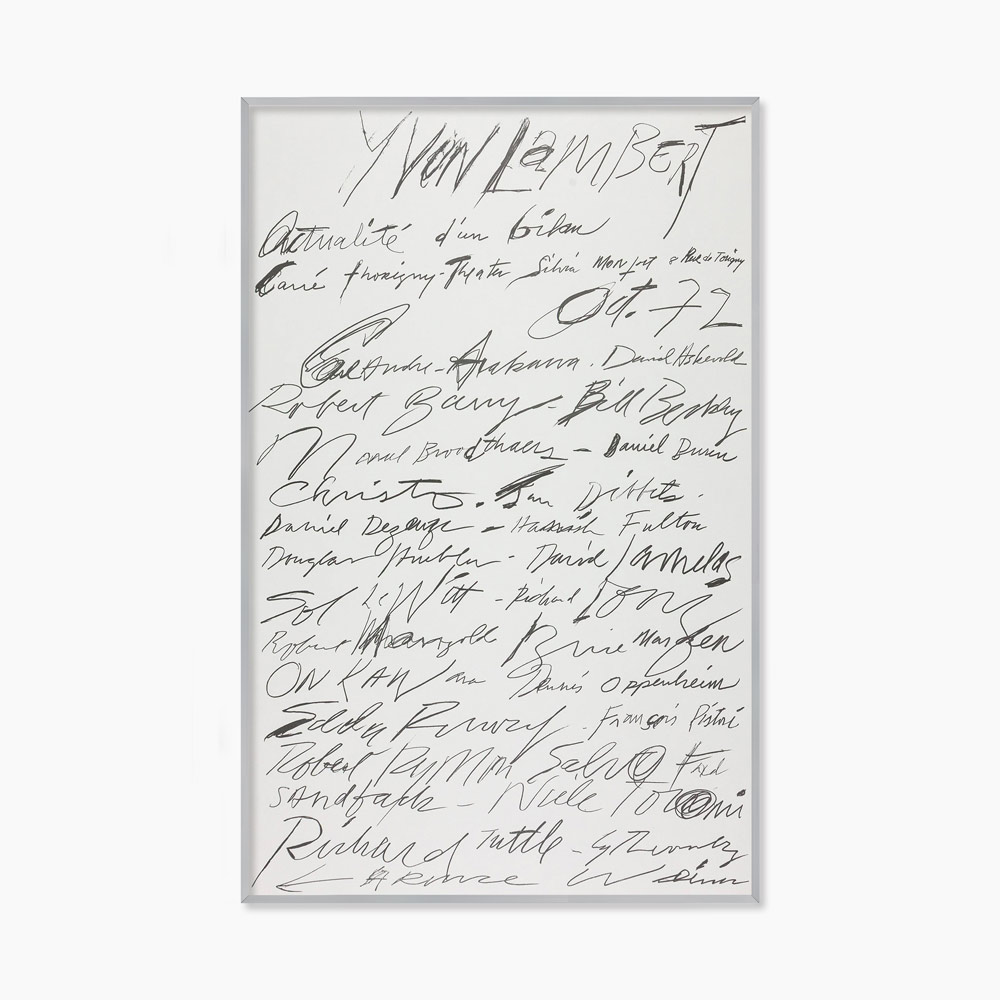 YVON LAMBERT
Actualité d'un bilan
Carré Thorigny-Theater Silvia Monfort & Rue de Torigny
Oct. 72
Carl Andre - Arakawa. David Askevold
Robert Barry - Bill Beckley
Marcel Broodthaers - Daniel Buren
Christo. Jan Dibbets.
Daniel Dezeuze - Hamish Fulton
Douglas Huebler - David Lamelas
Sol LeWitt - Richard Long
Robert Mangold Brice Marden
ON KAWara Dennis Oppenheim
Edda Renouf. François Ristori
Robert Ryman SalvO Fred
SAndback - Niele Toroni
Richard Tuttle - Cy Twombly
LAwrence Weiner